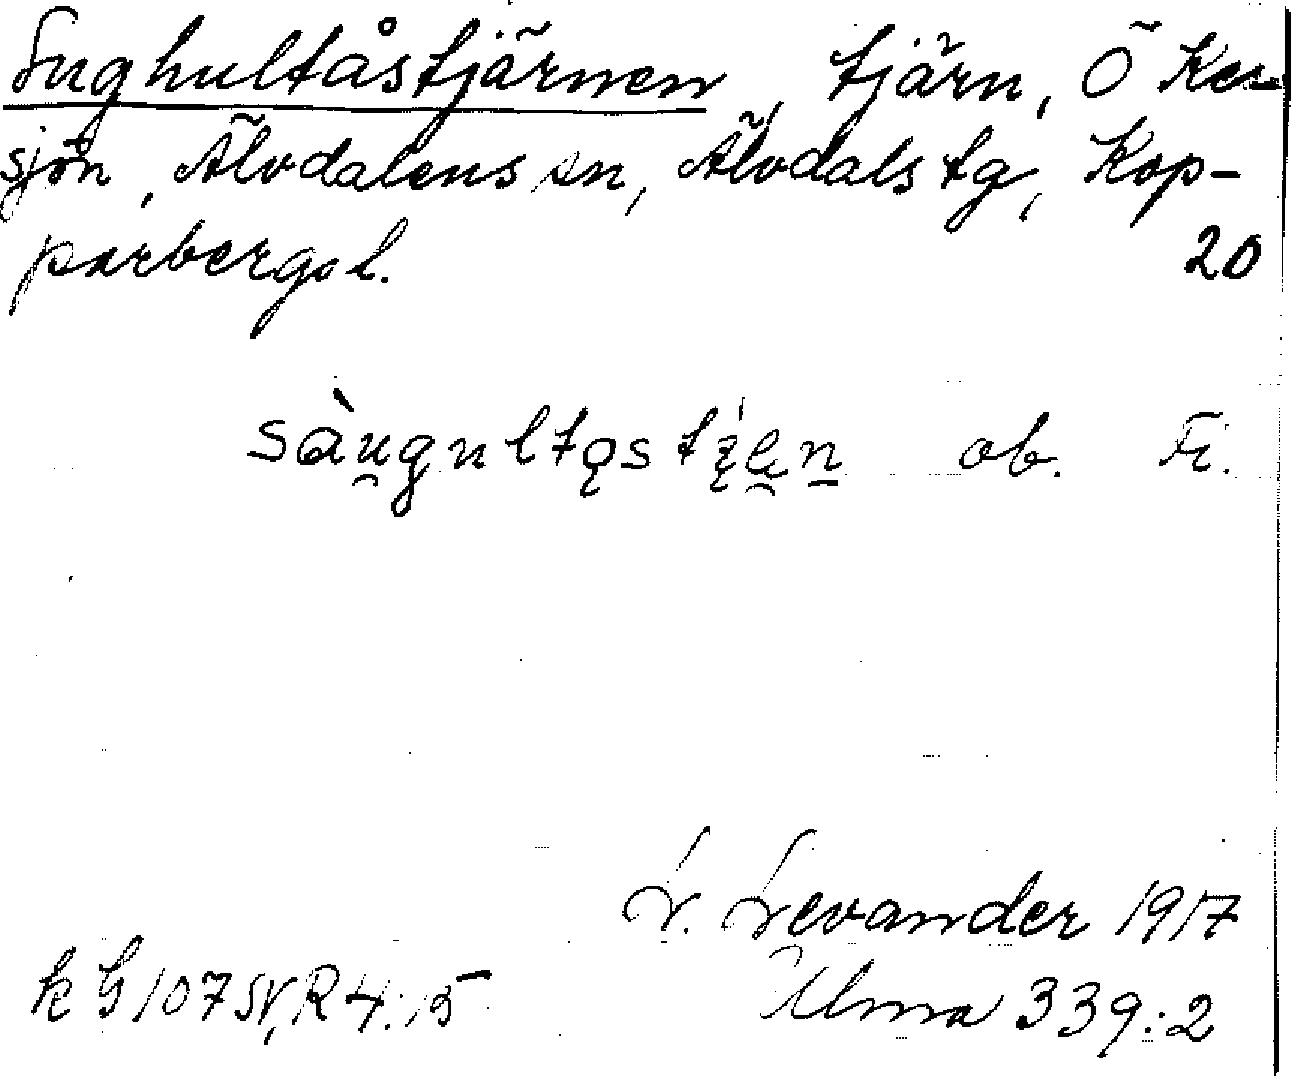 Sughultåstjärnen, tjärn, Ö Ker-
sjön, Älvdalens sn, Älvdals tg, Kop-
parbergs l. 20
sàu̯gultǫstʐ̨e̯n̲ ob. Fi.
L. Levander 1917
k G 107 SV, R 4:15 Ulma 339:2